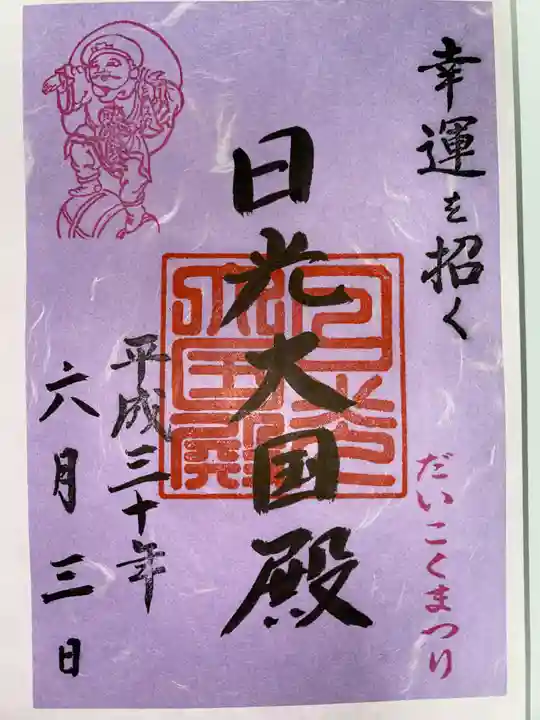 幸運を招く
だいこくまつり
日光大国殿
日光大国殿
平成三十年
六月三日